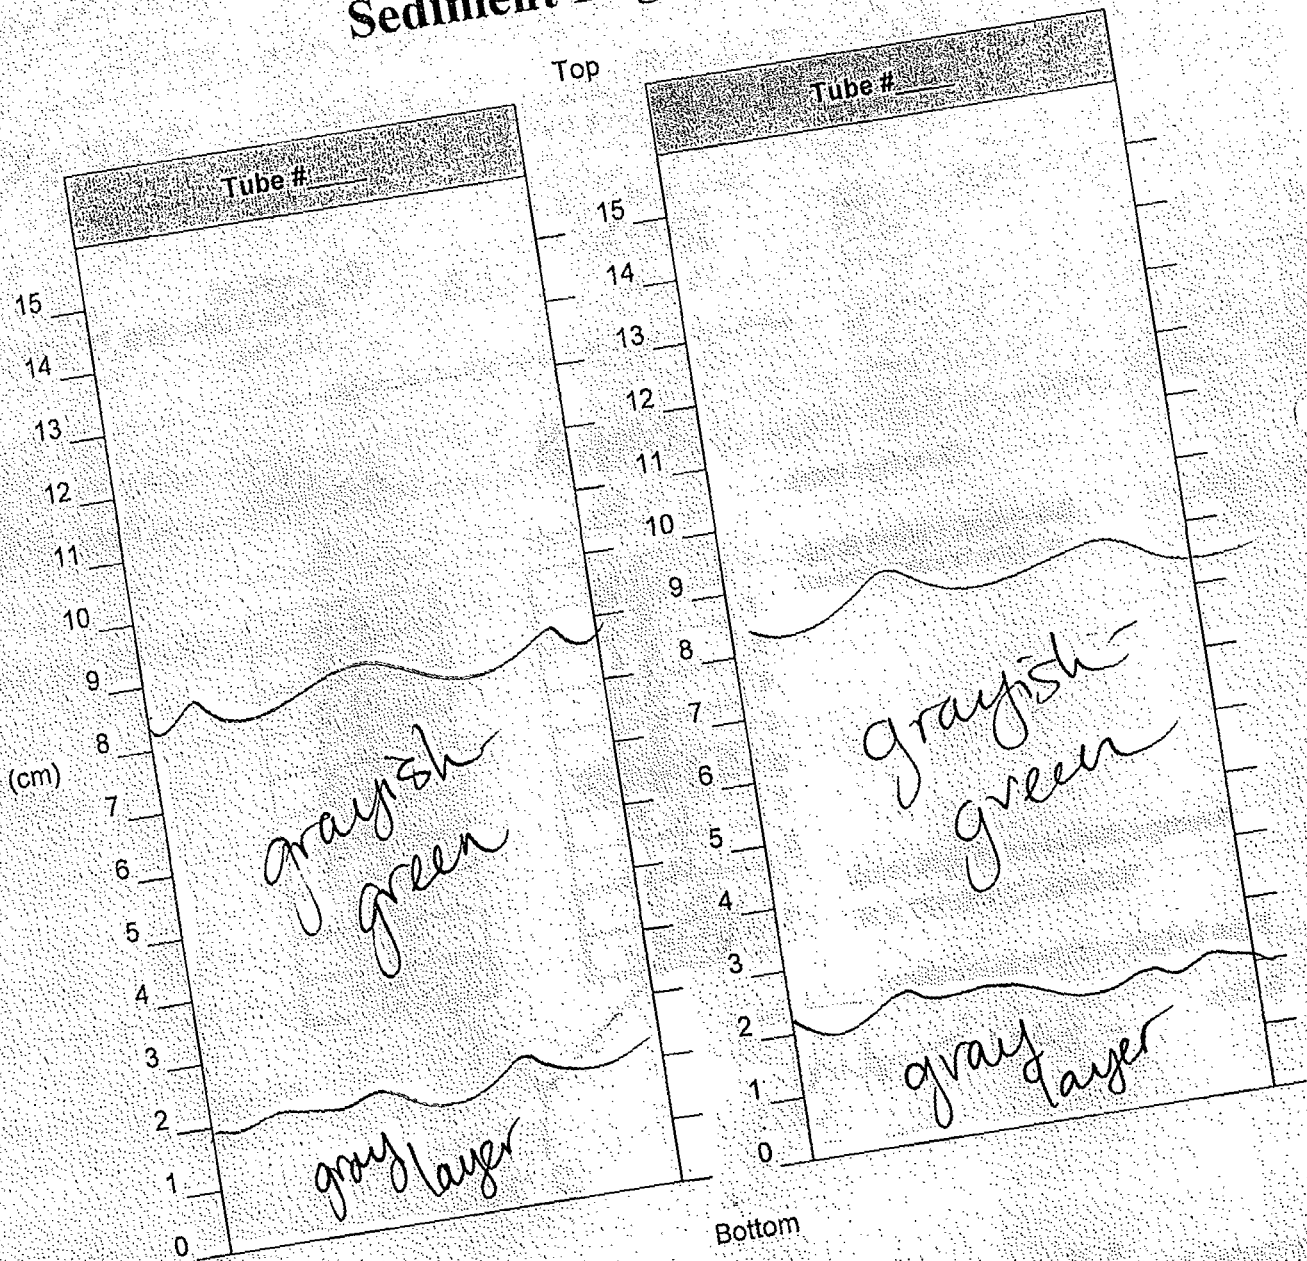 Sediment
Top
Tube #____
Tube #____
15
14
13
12
11
10
9
8
(cm)
7
6
5
4
3
2
1
0
grayish
green
gray layer
15
14
13
12
11
10
9
8
7
6
5
4
3
2
1
0
grayish
green
gray
layer
Bottom